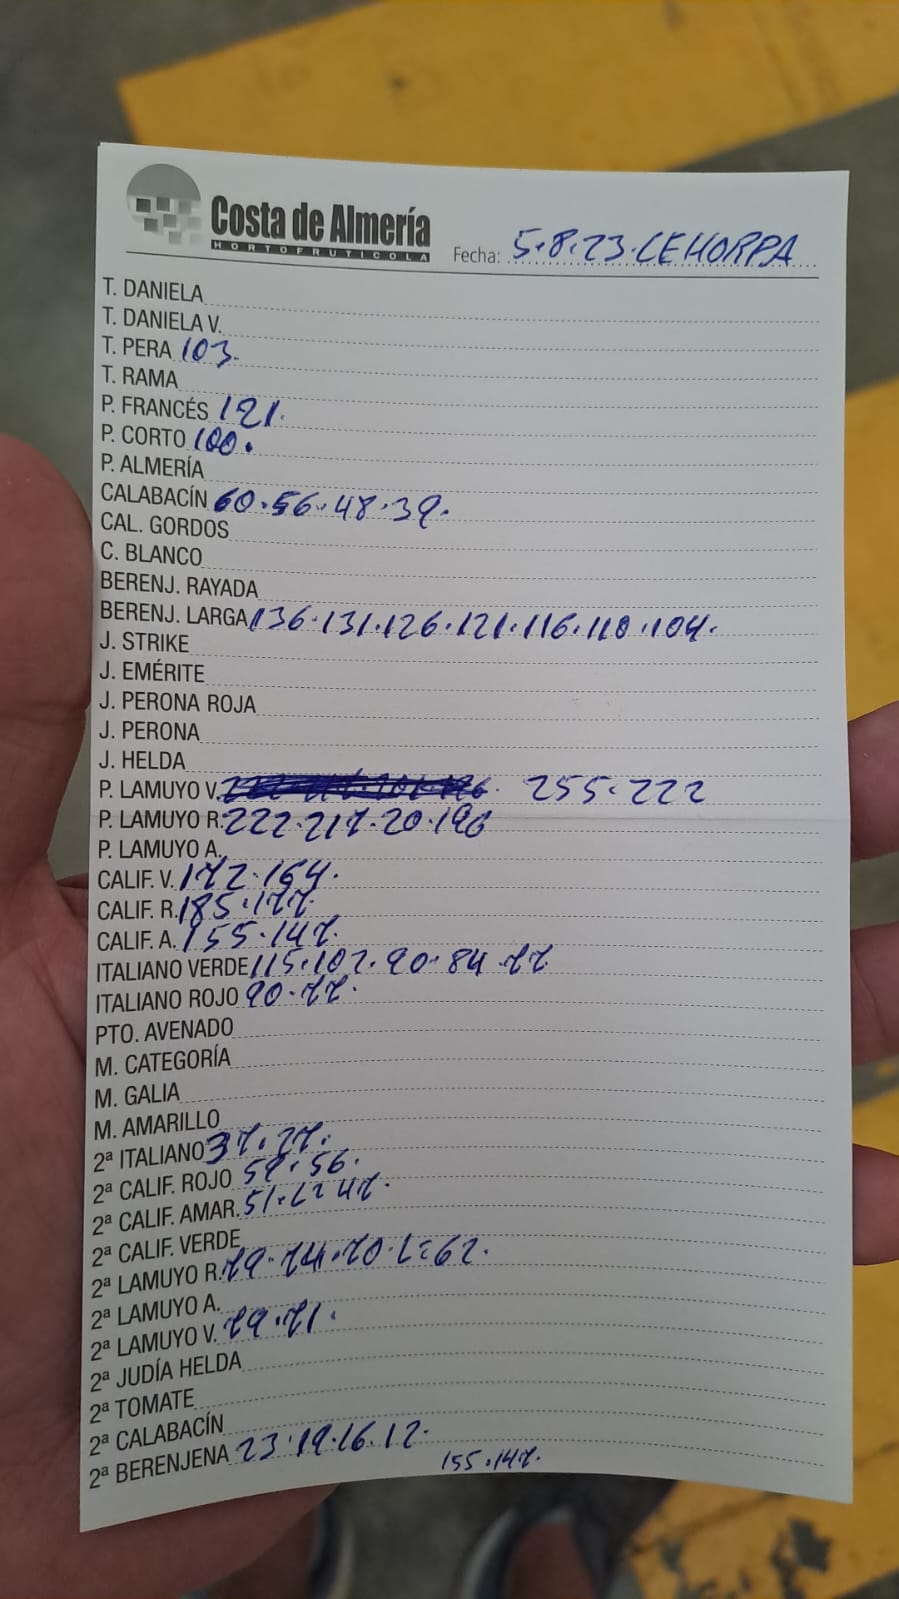 Costa de Almería
HORTOFRUTICOLA
Fecha: 5.8.23.CEHORPA
T. DANIELA
T. DANIELA V.
T. PERA 103.
T. RAMA
P. FRANCÉS 121.
P. CORTO 100.
P. ALMERÍA
CALABACÍN 60.56.48.39.
CAL. GORDOS
C. BLANCO
BERENJ. RAYADA
BERENJ. LARGA 136.131.126.121.116.110.104.
J. STRIKE
J. EMÉRITE
J. PERONA ROJA
J. PERONA
J. HELDA
P. LAMUYO V. 255.222
P. LAMUYO R. 222.217.20.196
P. LAMUYO A.
CALIF. V. 172.164.
CALIF. R. 185.177.
CALIF. A. 155.147.
ITALIANO VERDE 115.102.90.84.77
ITALIANO ROJO 90.77.
PTO. AVENADO
M. CATEGORÍA
M. GALIA
M. AMARILLO
2ª ITALIANO 37.27.
2ª CALIF. ROJO 59.56.
2ª CALIF. AMAR. 51.L=47.
2ª CALIF. VERDE
2ª LAMUYO R. 79.74.70.L=62.
2ª LAMUYO A.
2ª LAMUYO V. 79.71.
2ª JUDÍA HELDA
2ª TOMATE
2ª CALABACÍN
2ª BERENJENA 23.19.16.12.
155.147.